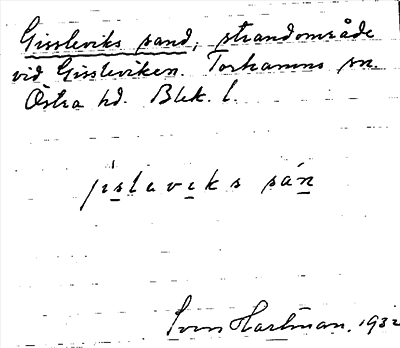 Gissleviks sand, strandområde
vid Gissleviken. Torhamns sn.
Östra hd. Blek. l.
jislaviks sán
Sven Hartman. 1932